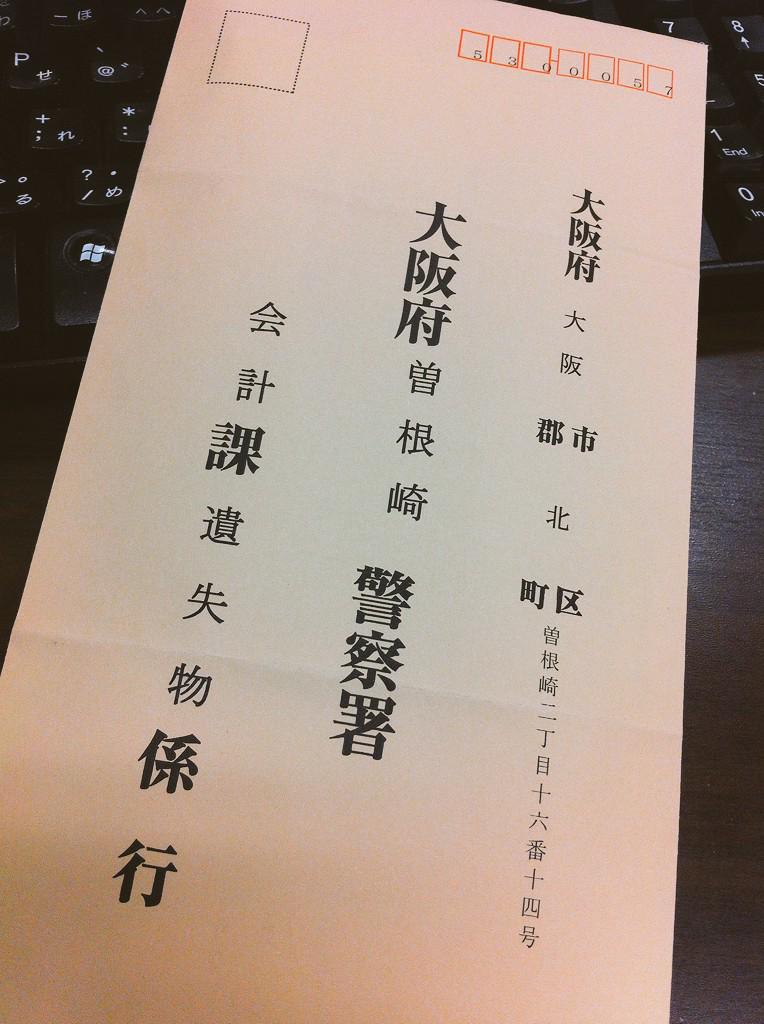 5300057
大阪府 大阪 市郡 北 区町 曽根崎二丁目十六番十四号
大阪府曽根崎 警察署
会計課遺失物係 行
わ ー ほ へ へ
P せ @ ゛
+ ; れ * :
。 る ? ・ / め
7 8 ↑
5
1 End
0 In